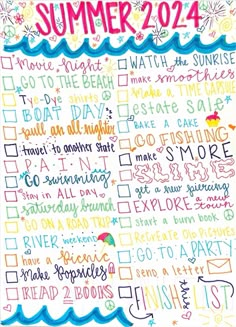 SUMMER 2024
Movie Night
GO TO THE BEACH
Tye-Dye shirts
BOAT DAY
pull an all nighter
travel to another state
PAINT
Go swimming
stay in ALL DAY
saturday brunch
GO ON A ROAD TRIP
RIVER weekend
have a Picnic
Make Popsicles
READ 2 BOOKS
WATCH THE SUNRISE
make smoothies
MAKE A TIME CAPSULE
estate sale
BAKE A CAKE
GO FISHING
make S'MORE
SLIME
get a new piercing
EXPLORE a new town
start a burn book
RECREATE OLD PICTURES
GO TO A PARTY
send a letter
FINISH THIS LIST